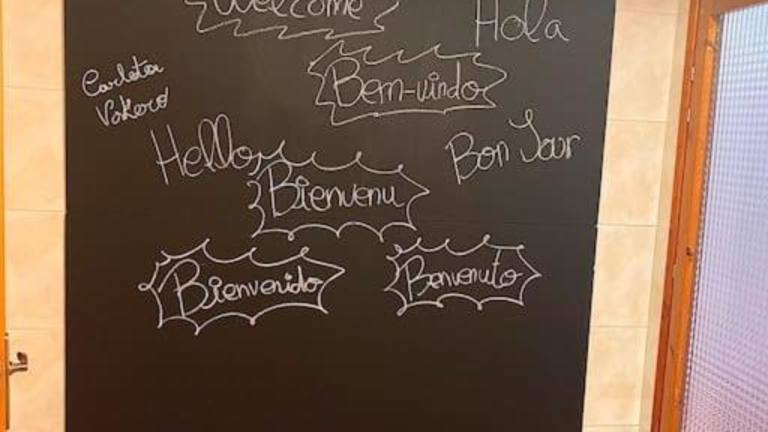 Welcome
Hola
Bem-vindo
Carleta
Vakero
Hello
Bon Jour
Bienvenu
Bienvenido
Benvenuto